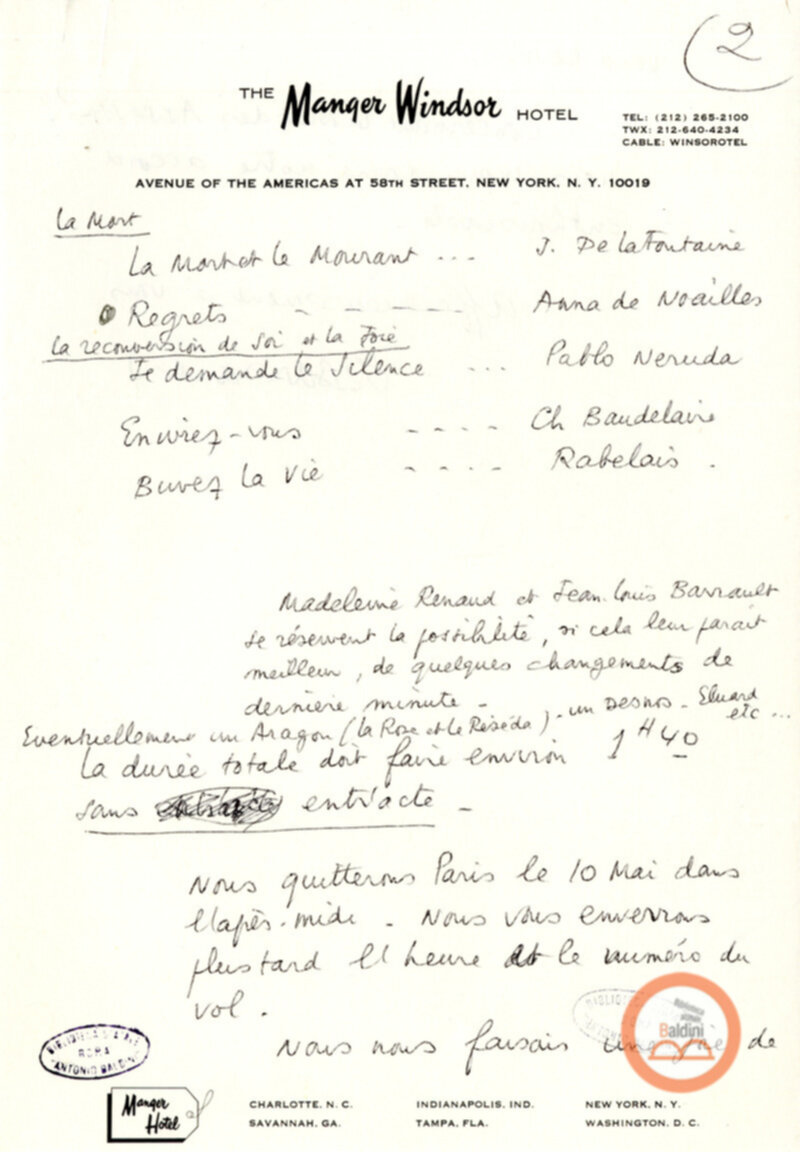 2
THE Manger Windsor HOTEL
TEL: (212) 265-2100
TWX: 212-640-4234
CABLE: WINSOROTEL
AVENUE OF THE AMERICAS AT 58TH STREET, NEW YORK, N. Y. 10019
La Mort
La Mort et le Mourant ... J. De la Fontaine
Regrets - - - - - Anna de Noailles
la reconversion de soi et la Joie
Je demande le Silence ... Pablo Neruda
Enivrez-vous - - - - Ch Baudelaire
Buvez la vie - - - - Rabelais .
Madeleine Renaud et Jean-Louis Barrault
se réservent la possibilité, si cela leur parait
meilleur, de quelques changements de
dernière minute -
Eventuellement un Aragon (la Rose et le Réséda) - un Desnos - Eluard
etc ...
la durée totale doit faire environ 1H40
sans entr'acte -
Nous quitterons Paris le 10 Mai dans
l'après-midi - Nous vous enverrons
plus tard l'heure et le numéro du
vol .
Nous nous faisons une de
BIBLIOTECA
ROMA
"ANTONIO BALDINI"
Biblioteca
Baldini
Manger Hotel
CHARLOTTE, N. C.
SAVANNAH, GA.
INDIANAPOLIS, IND.
TAMPA, FLA.
NEW YORK, N. Y.
WASHINGTON, D. C.